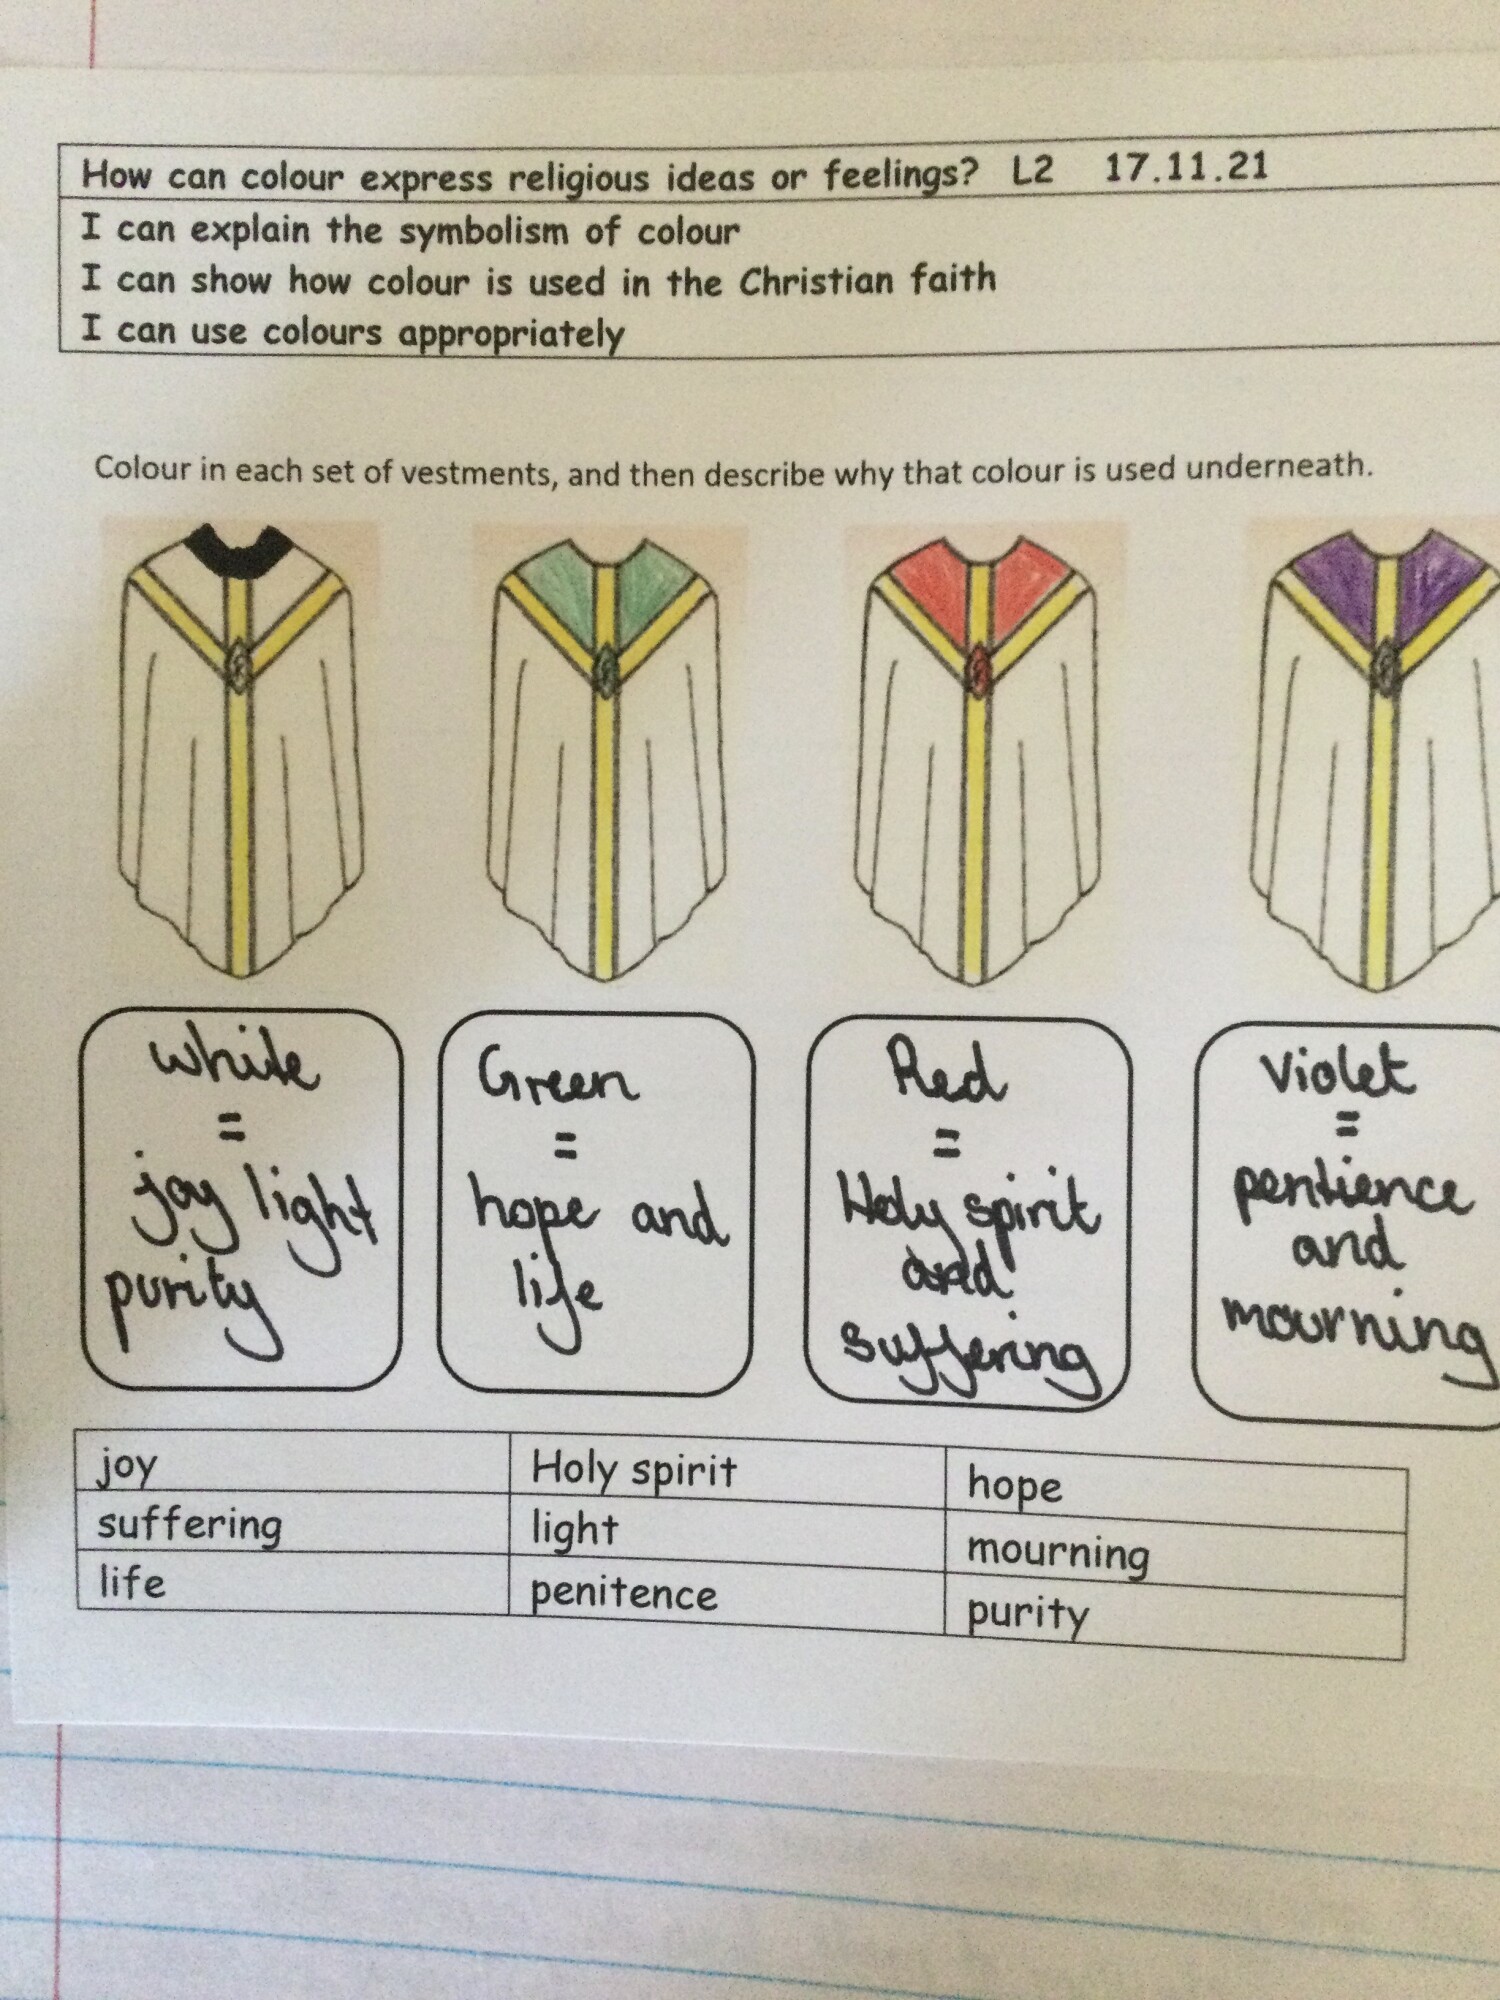 How can colour express religious ideas or feelings? L2 17.11.21
I can explain the symbolism of colour
I can show how colour is used in the Christian faith
I can use colours appropriately
Colour in each set of vestments, and then describe why that colour is used underneath.
White
=
joy light
purity
Green
=
hope and
life
Red
=
Holy spirit
and
suffering
Violet
=
pentience
and
mourning
joy Holy spirit hope
suffering light mourning
life penitence purity